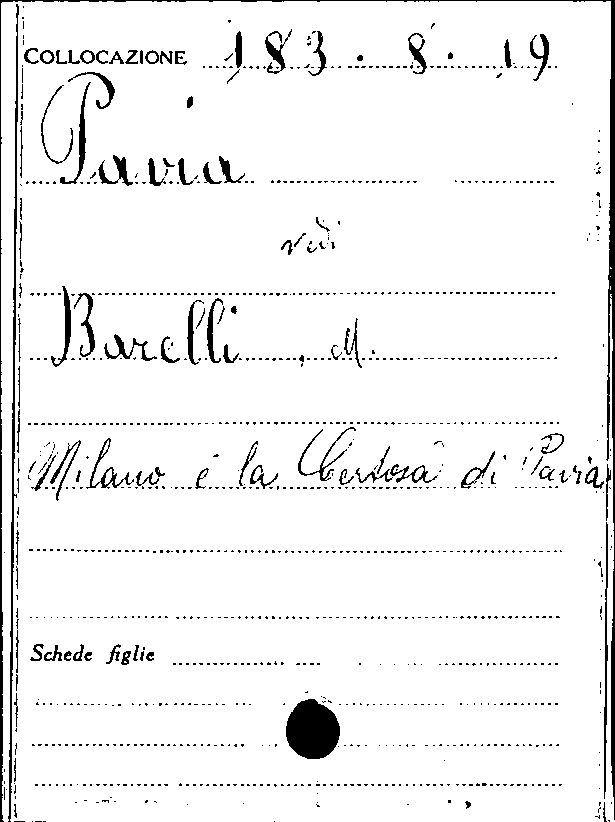 COLLOCAZIONE 183.8.19
Pavia
vedi
Barelli, M.
Milano e la Certosa di Pavia
Schede figlie